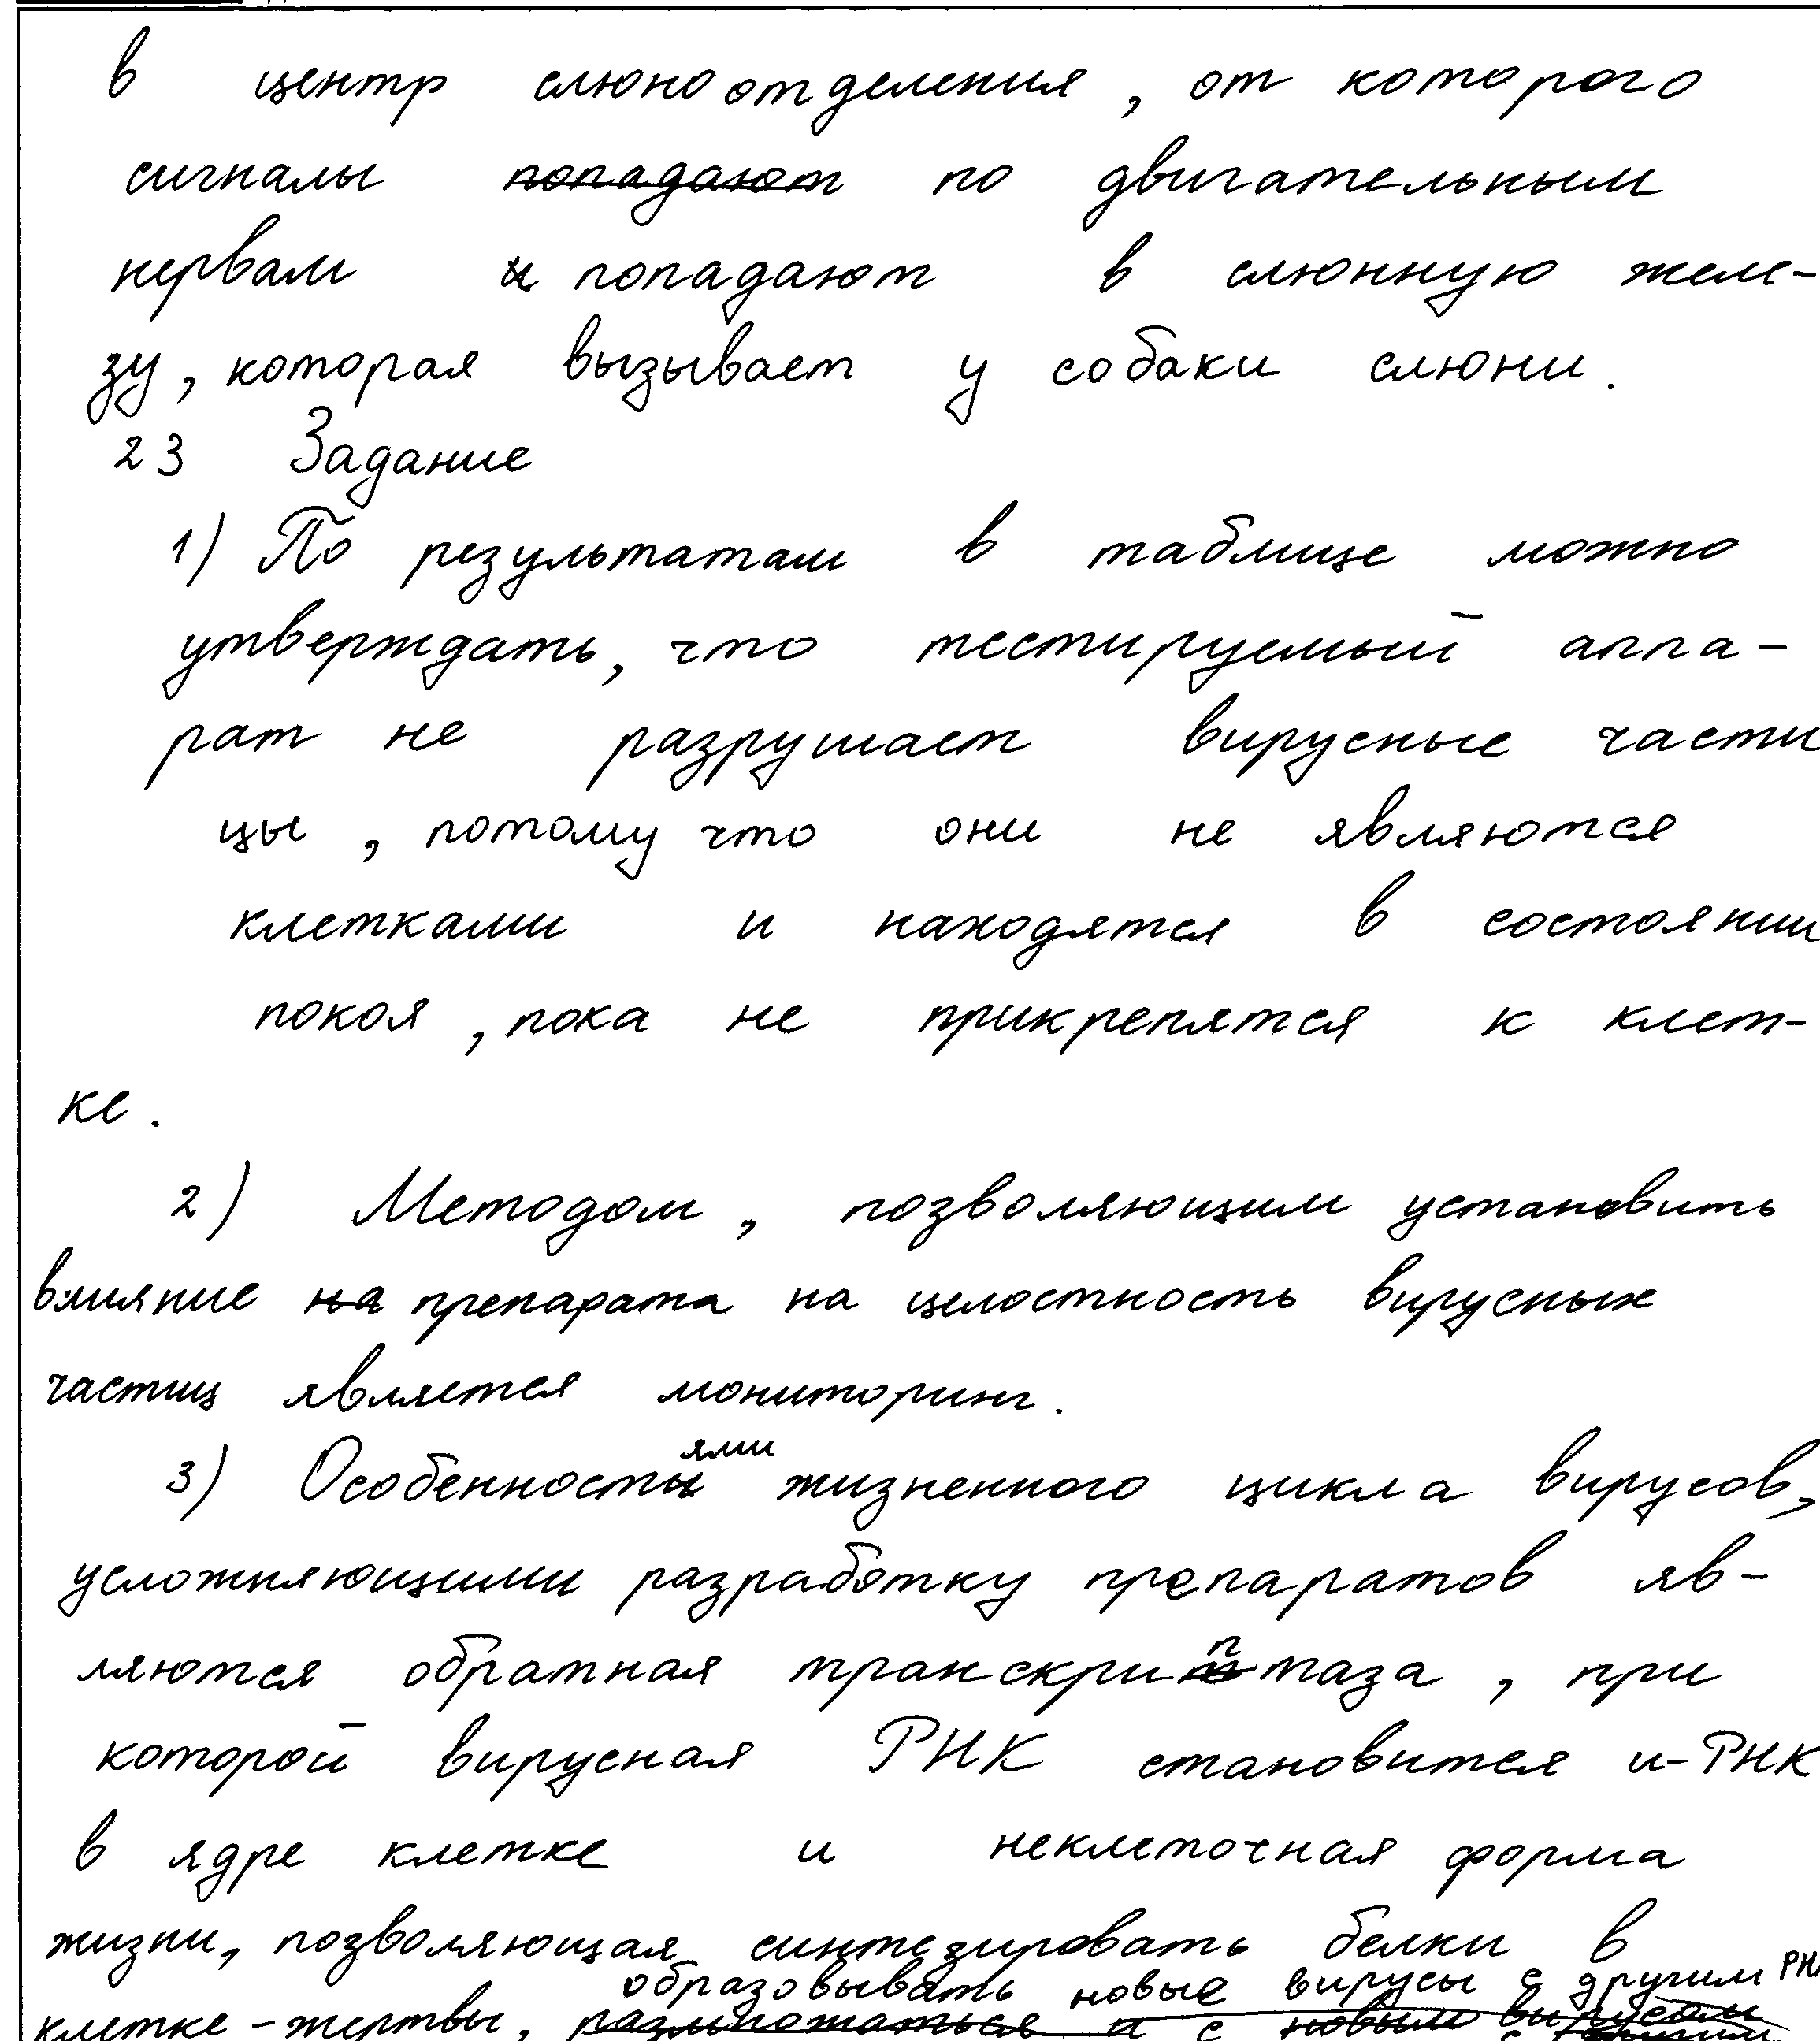 в центр слюноотделения, от которого
сигналы попадают по двигательным
нервам и попадают в слюнную желе-
зу, которая вызывает у собаки слюни.
23 Задание
1) По результатам в таблице можно
утверждать, что тестируемый аппа-
рат не разрушает вирусные части
цы, потому что они не являются
клетками и находятся в состоянии
покоя, пока не прикрепятся к клет-
ке.
2) Методом, позволяющим установить
влияние на препарата на целостность вирусных
частиц является мониторинг.
3) Особенностями жизненного цикла вирусов,
усложняющими разработку препаратов яв-
ляются обратная транскриптаза, при
которой вирусная РНК становится и-РНК
в ядре клетке и неклеточная форма
жизни, позволяющая синтезировать белки в
образовывать новые вирусы с другим РНК
клетке-жертвы, размножаться и с новым вирусом